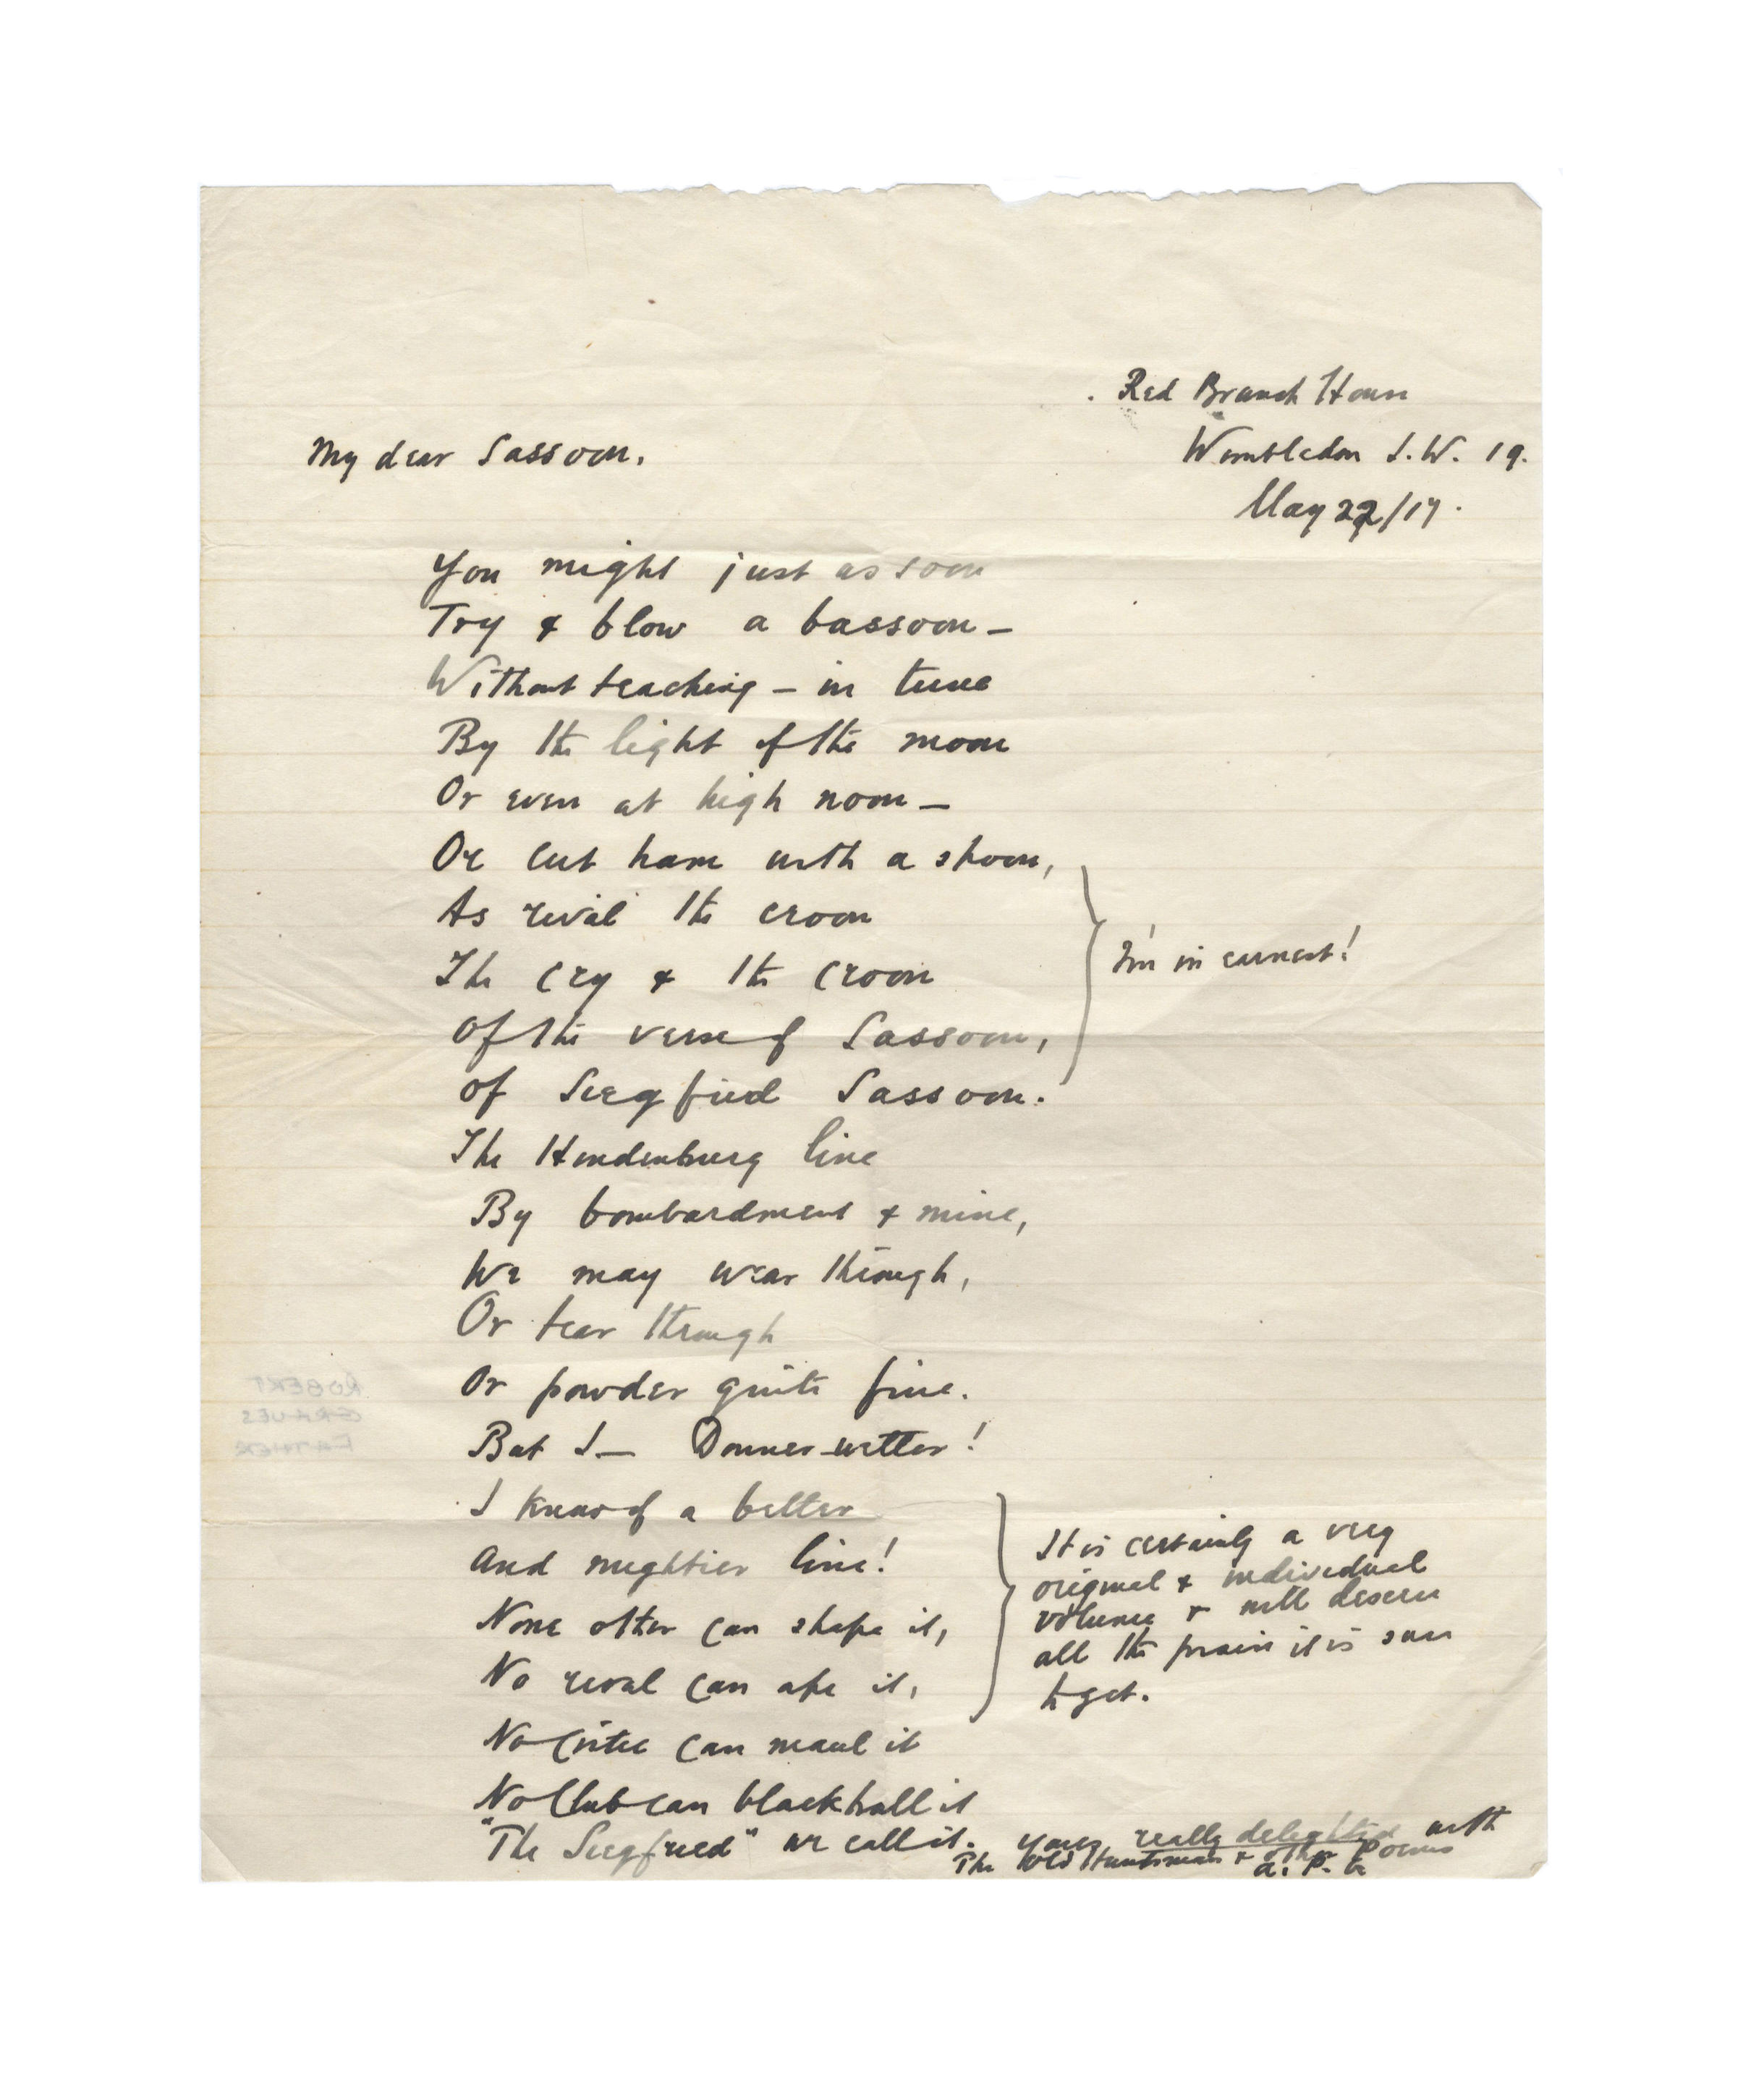 Red Branch House
Wimbledon S.W. 19.
May 22/17.
My dear Sassoon,
You might just as soon
Try & blow a bassoon —
Without teaching — in tune
By the light of the moon
Or even at high noon —
Or cut ham with a shoon,
As rival the croon
The cry & the croon
Of the verse of Sassoon,
of Siegfried Sassoon.
I'm in earnest!
The Hindenburg line
By bombardment & mine,
We may wear through,
Or tear through
Or powder quite fine.
But I — Donner-wetter!
I know of a better
And mightier line!
None other can shape it,
No rival can ape it,
No Critic can maul it
No Club can blackball it
"The Siegfried" we call it.
It is certainly a very
original & individual
volume & will deserve
all the praise it is sure
to get.
Yours, really delighted with
The Old Huntsman & other Poems
A. P. G
ROBERT
GRAVES
FATHER